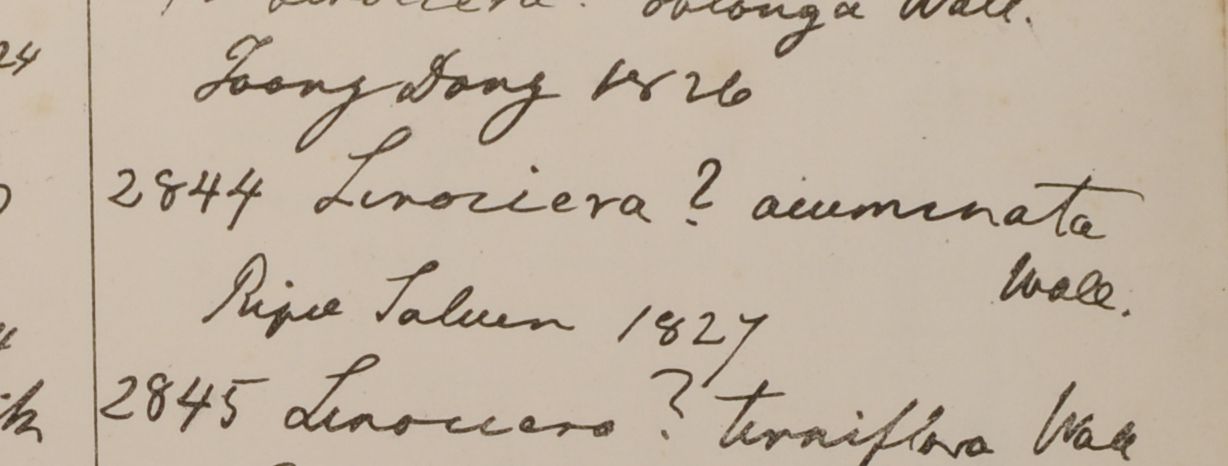 Linociera. oblonga Wall.
Toong Dong 1826
2844 Linociera ? acuminata
Wall.
Ripae Saluen 1827
2845 Linociera ? terniflora Wall